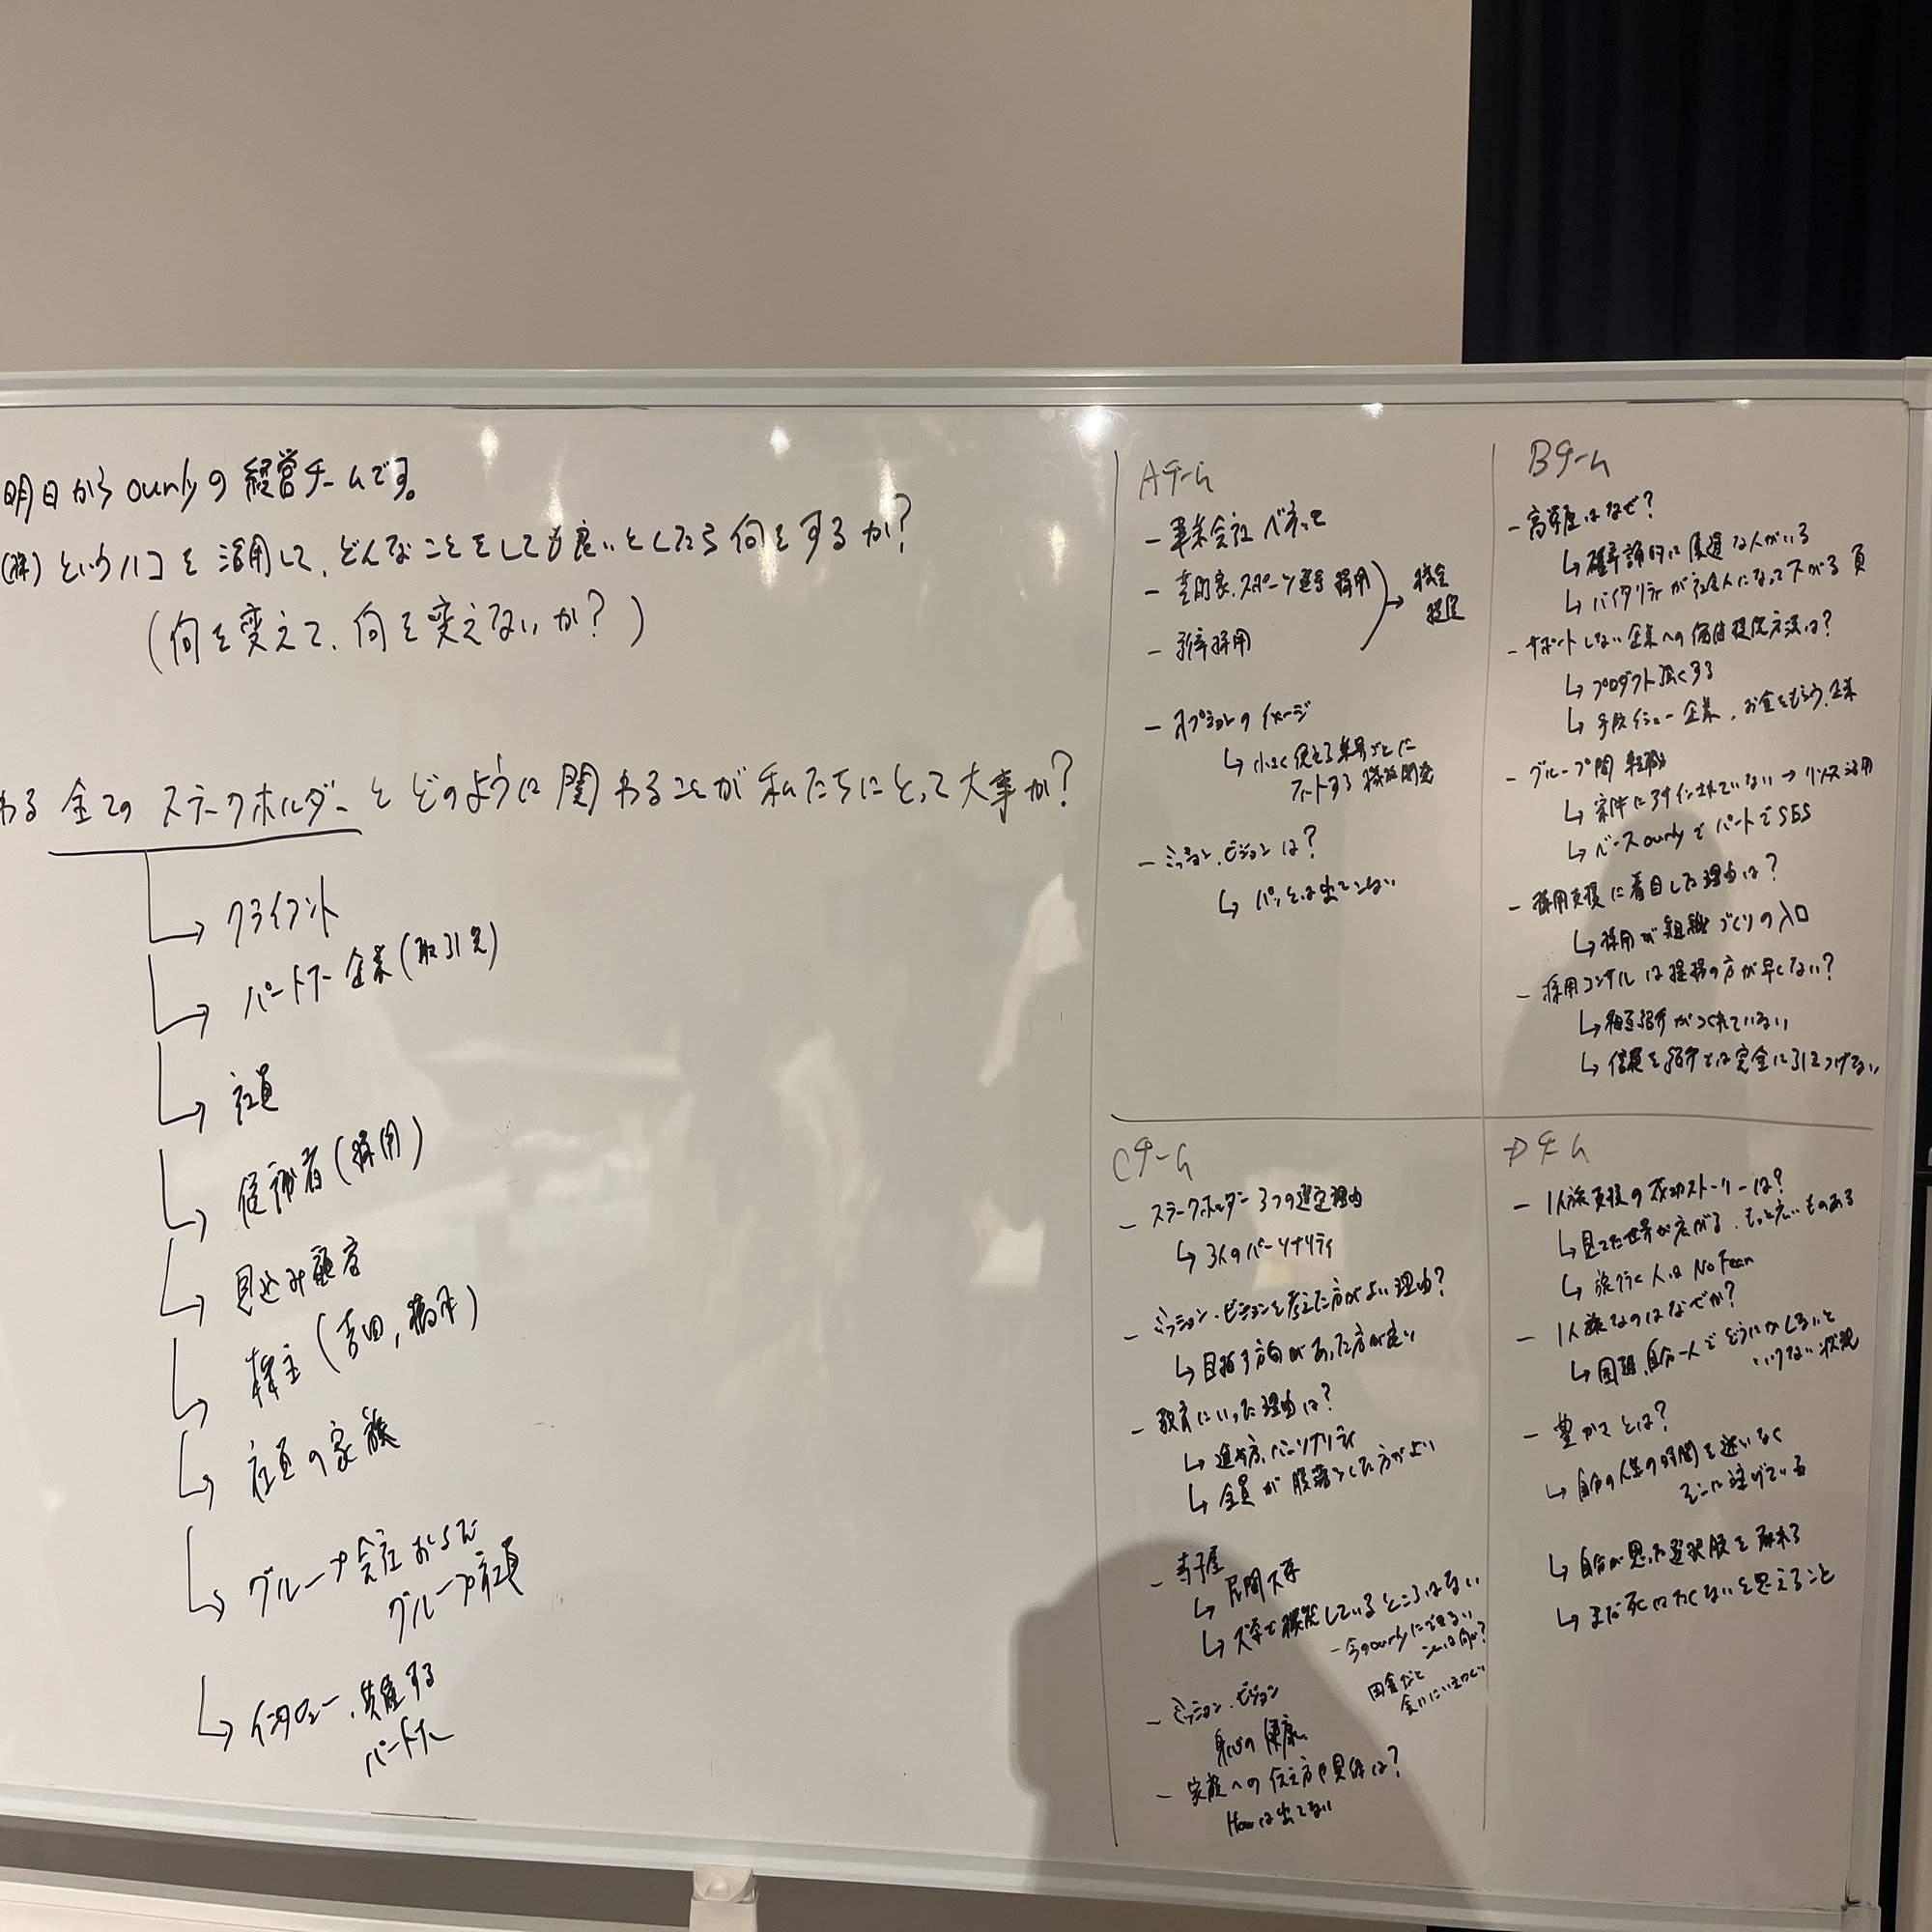 明日から ourly の経営チームです。
(株) というハコを活用して、どんなことをしても良いとしたら何をするか?
(何を変えて、何を変えないか?)
わる 全てのステークホルダーとどのように関わることが私たちにとって大事か?
↳ クライアント
↳ パートナー企業(取引先)
↳ 社員
↳ 候補者(採用)
↳ 見込み顧客
↳ 株主(吉田,
↳ 社員の家族
↳ グループ会社ならびに
グループ社員
↳ インタビュー、
パートナー
Aチーム
- 事業会社
- 芸術家、スポーツ選手 採用
- 新卒採用
→ 機会
提供
- オプションのイメージ
↳ 小さく使える業界ごとに
フィットする機能開発
- ミッション、ビジョンは?
↳ パッとは出てこない
Bチーム
- はなぜ?
↳ 確率論的に優秀な人がいる
↳ バイタリティが社会人になって下がる
- サポートしない企業への価値提供方法は?
↳ プロダクト強くする
↳ イシュー企業、お金をもらう企業
- グループ間
↳ 案件にアサインされていない → リソース活用
↳ ベースourlyでパートでSES
- 採用支援に着目した理由は?
↳ 採用が組織づくりの入口
- 採用コンサルは提携の方が早くない?
↳ 相互紹介がつくれていない
↳ 信頼を紹介では完全に引きつげない
Cチーム
- ステークホルダー3つの選定理由
↳ 3人のパーソナリティ
- ミッション・ビジョンを考えた方がよい理由?
↳ 目指す方向があった方が良い
- 教育にいった理由は?
↳ 進め方、パーソナリティ
↳ 全員が腹落ちした方がよい
- 寺子屋
↳ 民間
↳ しているところはない
- 今のourlyにできない
ことは何か?
田舎だと
会いにいきづらい
- ミッション・ビジョン
身心の健康
- 家族への伝え方や具体は?
Howは出てない
Dチーム
- 1人旅支援の成功ストーリーは?
↳ 見てた世界が広がる、もっと広いものある
↳ 旅行く人は No Fear
- 1人旅なのはなぜか?
↳ 困難、自分一人でどうにかしないと
いけない状況
- 豊かさとは?
↳ 自分の人生の時間を迷いなく
そこに注げている
↳ 自分が思った選択肢を取れる
↳ まだ死にたくないと思えること